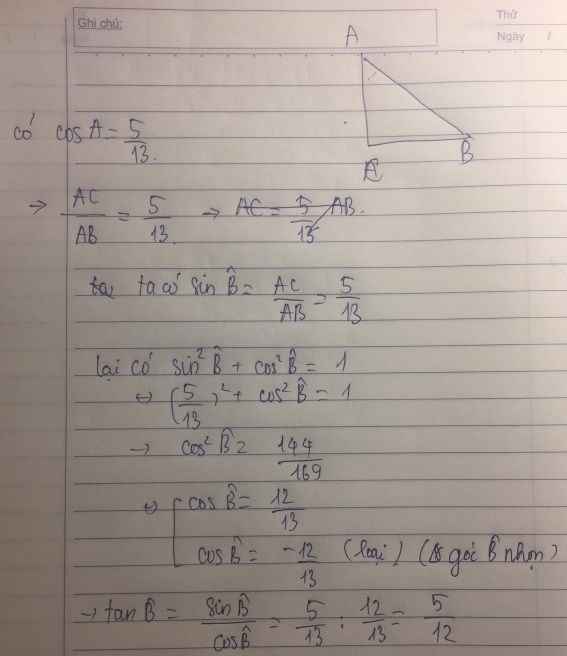 Ghi chú:
Thứ
Ngày /
A
B
C
có cos A = 5/13.
→ AC/AB = 5/13. → AC = 5/13 AB.
ta có sin B̂ = AC/AB = 5/13
lại có sin² B̂ + cos² B̂ = 1
⇔ (5/13)² + cos² B̂ = 1
→ cos² B̂ = 144/169
⇔ [ cos B̂ = 12/13
cos B̂ = -12/13 (loại) (góc B̂ nhọn)
→ tan B̂ = sin B̂/cos B̂ = 5/13 : 12/13 = 5/12